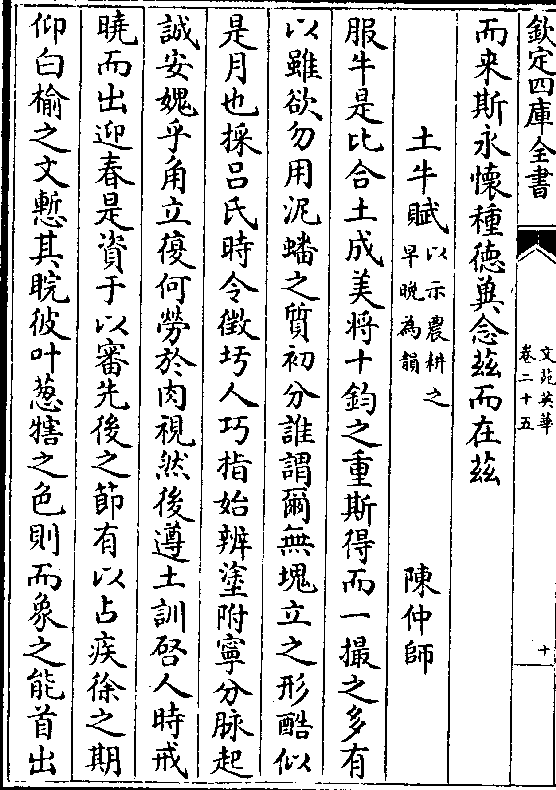 欽定四庫全書
文苑英華
卷二十五
十
而来斯永懷種徳兾念茲而在茲
土牛賦以示農耕之早晚為韻
陳仲師
服牛是比合土成美将十鈞之重斯得而一撮之多有
以雖欲勿用泥蟠之質初分誰謂爾無塊立之形酷似
是月也採吕氏時令徴圬人巧指始辨塗附寧分脉起
誠安媿乎角立復何勞於肉視然後遵土訓啓人時戒
曉而出迎春是資于以審先後之節有以占疾徐之期
仰白榆之文慙其睆彼叶葱犗之色則而象之能首出